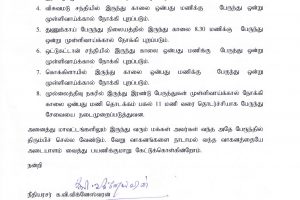 4. விசுவமடு சந்தியில் இருந்து காலை ஒன்பது மணிக்கு பேருந்து ஒன்று
முள்ளிவாய்க்கால் நோக்கி புறப்படும்.
5. துணுக்காய் பேருந்து நிலையத்தில் இருந்து காலை 8.30 மணிக்கு பேருந்து
ஒன்று முள்ளிவாய்க்கால் நோக்கி புறப்படும்.
6. ஒட்டுசுட்டான் சந்தியில் இருந்து காலை ஒன்பது மணிக்கு பேருந்து ஒன்று
முள்ளிவாய்க்கால் நோக்கி புறப்படும்.
7. கொக்கிளாயில் இருந்து காலை ஒன்பது மணிக்கு பேருந்து ஒன்று
முள்ளிவாய்க்கால் நோக்கி புறப்படும்.
8. முல்லைத்தீவு நகரில் இருந்து இரண்டு பேருந்துகள் முள்ளிவாய்க்கால் நோக்கி
காலை ஒன்பது மணி தொடக்கம் பகல் 11 மணி வரை தொடர்ச்சியாக பேருந்து
சேவையை நடைமுறைப்படுத்துவன.
அனைத்து மாவட்டங்களிலும் இருந்து வரும் மக்கள் அவர்கள் வந்த அதே பேருந்தில்
திரும்பிச் செல்ல வேண்டும். வேறு வாகனங்களை நாடாமல் வந்த வாகனத்தையே
அடையாளம் வைத்து பயணிக்குமாறு கேட்டுக்கொள்கின்றோம்.
நன்றி
நீதியரசர் க.வி.விக்னேஸ்வரன்